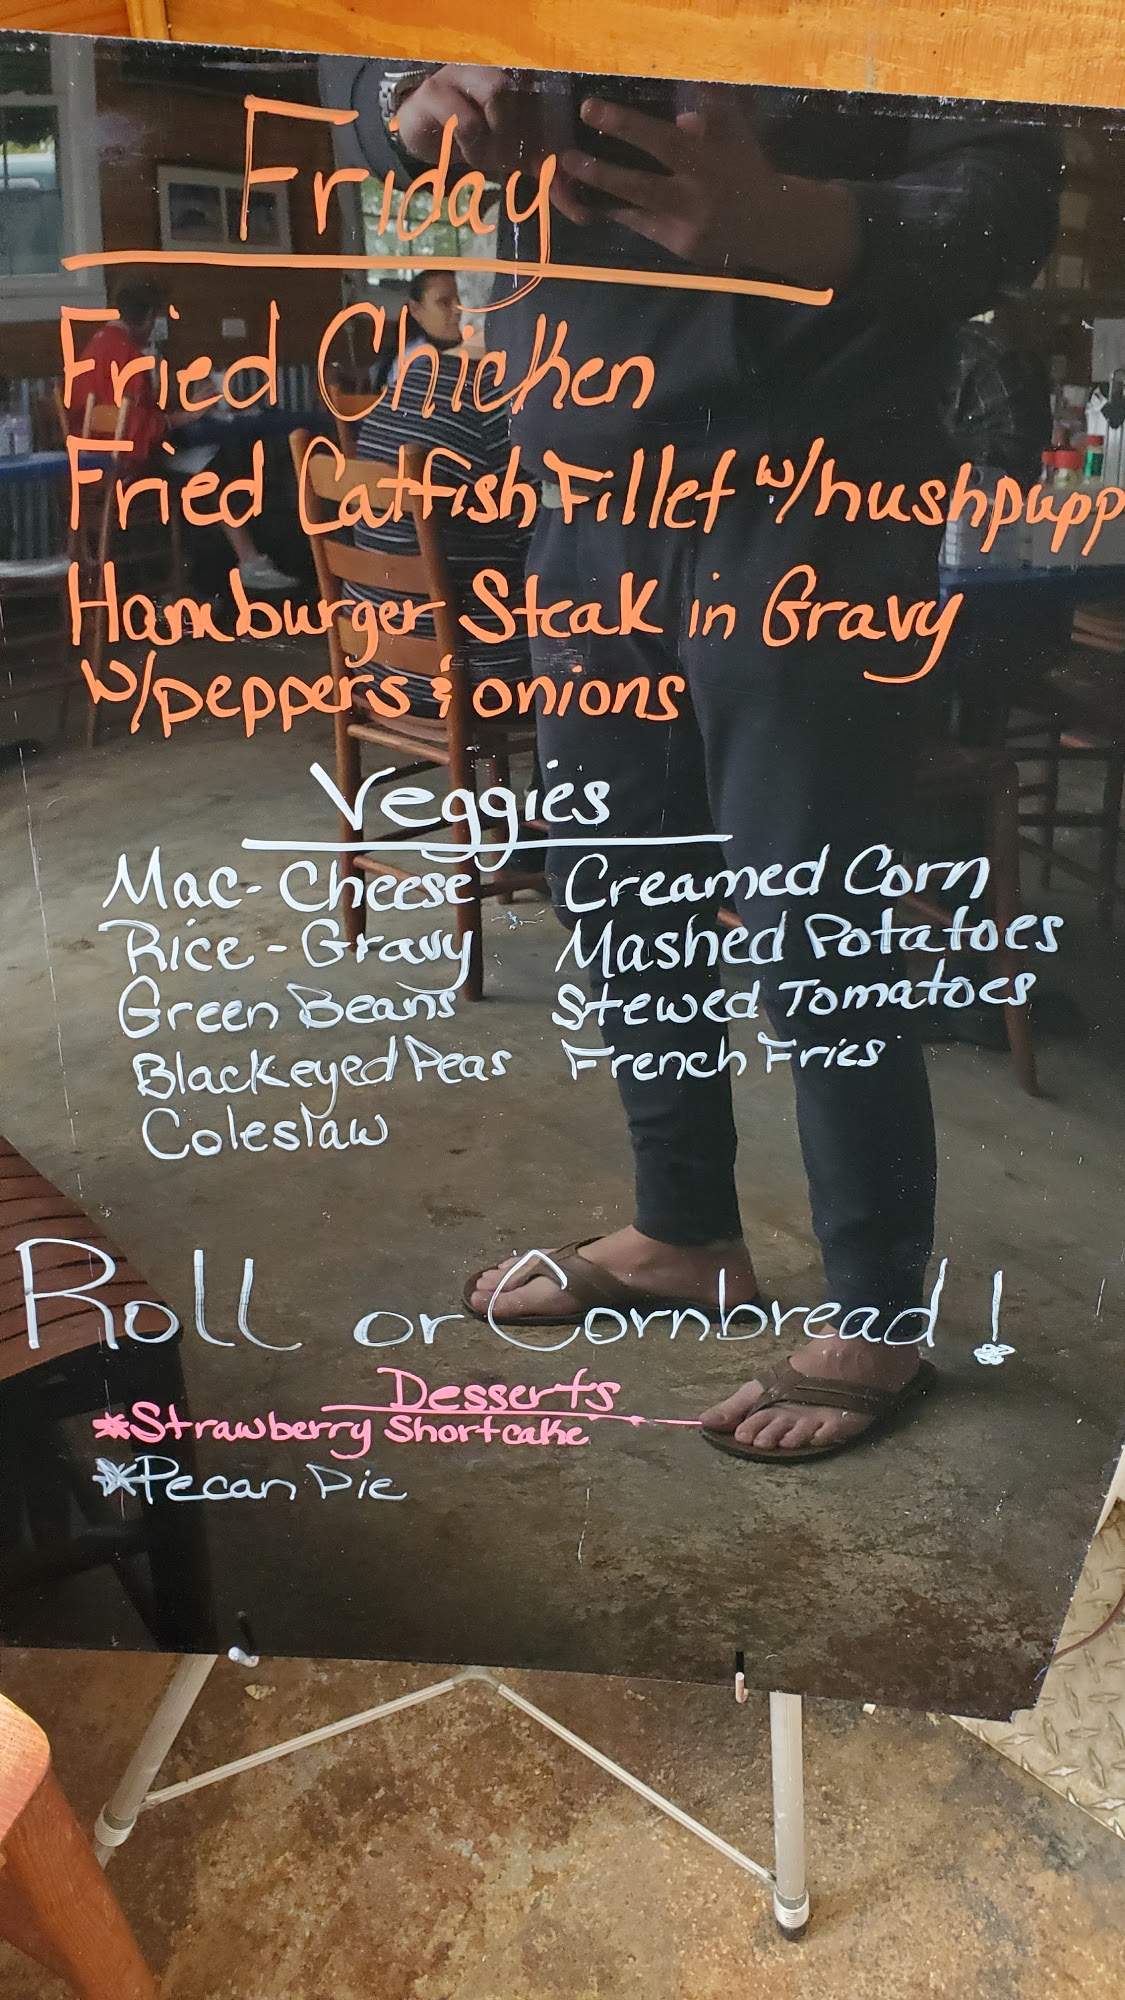 Friday
Fried Chicken
Fried Catfish Fillet w/hushpupp
Hamburger Steak in Gravy
w/peppers & onions
Veggies
Mac-Cheese Creamed Corn
Rice-Gravy Mashed Potatoes
Green Beans Stewed Tomatoes
Blackeyed Peas French Fries
Coleslaw
Roll or Cornbread!
Desserts
*Strawberry Shortcake
*Pecan Pie